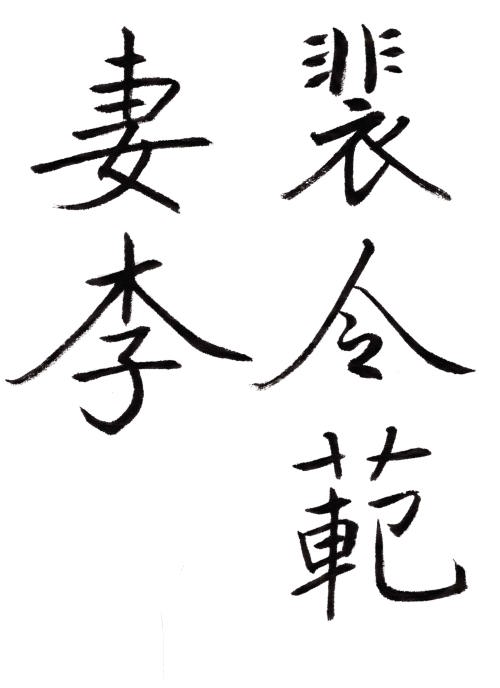 裴令範
妻李